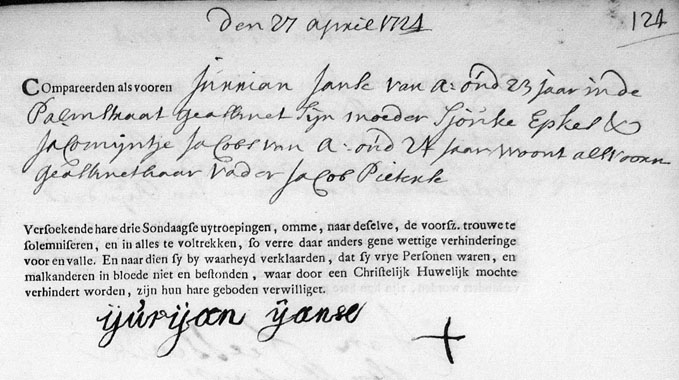 Den 27 april 1724
124
COmpareerden als vooren Jurrian Janse van A: oud 23 jaar in de
Palmstraat geassisteert sijn moeder Sjouke Epkes &
Jacomijntje Jacobs van A: oud 24 jaar woont als vooren
geassisteert haar vader Jacob Pieterse
Versoekende hare drie Sondaagse uytroepingen, omme, naar deselve, de voorsz. trouwe te
solemniseren, en in alles te voltrekken, so verre daar anders gene wettige verhinderinge
voor en valle. En naar dien sy by waarheyd verklaarden, dat sy vrye Personen waren, en
malkanderen in bloede niet en bestonden, waar door een Christelijk Huwelijk mochte
verhindert worden, zijn hun hare geboden verwilliget.
ijurijan ijanse